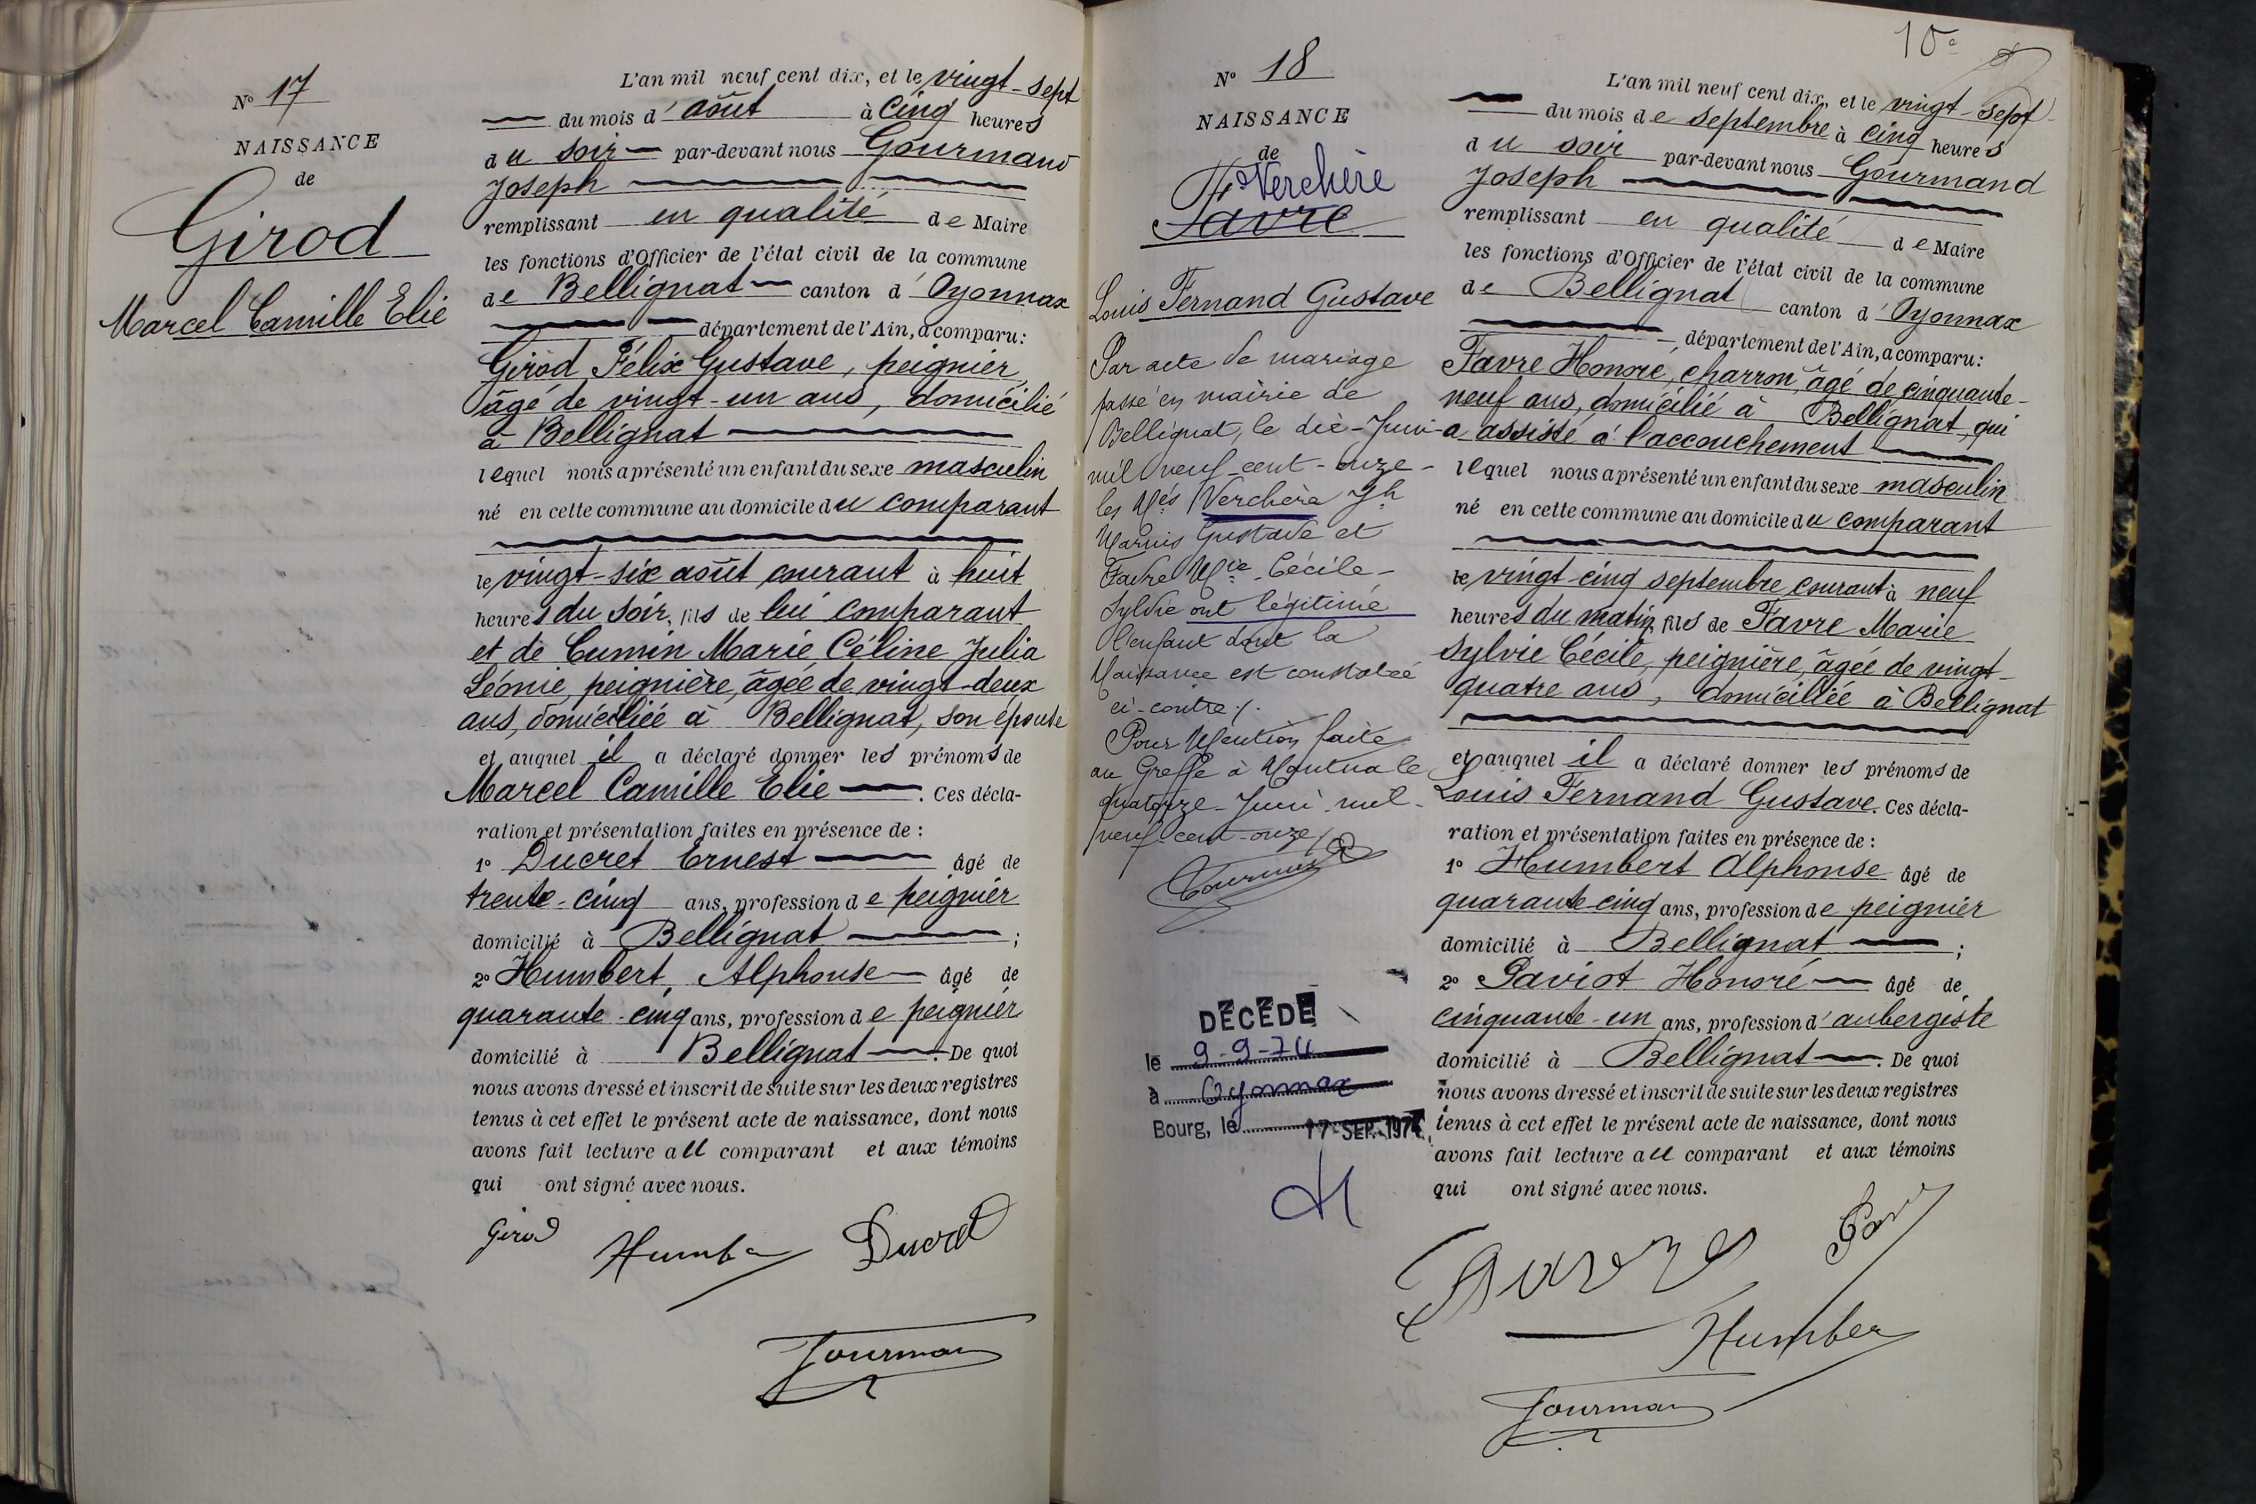 N° 17
NAISSANCE
de
Girod
Marcel Camille Elie
L'an mil neuf cent dix, et le vingt-sept
du mois d'août à cinq heures
du soir par-devant nous Gourmand
Joseph
remplissant en qualité de Maire
les fonctions d'Officier de l'état civil de la commune
de Bellignat canton d'Oyonnax
département de l'Ain, a comparu:
Girod Félix Gustave, peignier,
âgé de vingt-un ans, domicilié
à Bellignat
lequel nous a présenté un enfant du sexe masculin
né en cette commune au domicile du comparant
le vingt-six août courant à huit
heures du soir, fils de lui comparant
et de Cumin Marie Céline Julia
Léonie, peignière, âgée de vingt-deux
ans, domiciliée à Bellignat, son épouse
et auquel il a déclaré donner les prénoms de
Marcel Camille Elie. Ces décla-
ration et présentation faites en présence de :
1° Ducret Ernest âgé de
trente-cinq ans, profession de peignier
domicilié à Bellignat ;
2° Humbert, Alphonse âgé de
quarante-cinq ans, profession de peignier
domicilié à Bellignat. De quoi
nous avons dressé et inscrit de suite sur les deux registres
tenus à cet effet le présent acte de naissance, dont nous
avons fait lecture au comparant et aux témoins
qui ont signé avec nous.
Girod Humbe Ducret
Gourman
10e
N° 18
NAISSANCE
de
Verchère
Favre
Louis Fernand Gustave
Par acte de mariage
passé en mairie de
Bellignat, le dix-Juin
mil neuf cent-onze-
les Més Verchère Jh
Marius Gustave et
Favre Mie Cécile-
Sylvie ont légitimé
l'enfant dont la
Naissance est constatée
ci-contre/.
Pour Mention faite
au Greffe à Nantua le
quatorze-Juin mil-
neuf-cent-onze/.
DÉCÉDÉ
le 9-9-74
à Oyonnax
Bourg, le 17 SEP. 1974
L'an mil neuf cent dix, et le vingt-sept
du mois de septembre à cinq heures
du soir par-devant nous Gourmand
Joseph
remplissant en qualité de Maire
les fonctions d'Officier de l'état civil de la commune
de Bellignat canton d'Oyonnax
département de l'Ain, a comparu:
Favre Honoré, charron, âgé de cinquante-
neuf ans, domicilié à Bellignat, qui
a assisté à l'accouchement
lequel nous a présenté un enfant du sexe masculin
né en cette commune au domicile du comparant
le vingt-cinq septembre courant à neuf
heures du matin, fils de Favre Marie
Sylvie Cécile, peignière, âgée de vingt-
quatre ans, domicillée à Bellignat
et auquel il a déclaré donner les prénoms de
Louis Fernand Gustave. Ces décla-
ration et présentation faites en présence de :
1° Humbert Alphonse âgé de
quarante-cinq ans, profession de peignier
domicilié à Bellignat ;
2° Saviot Honoré âgé de
cinquante-un ans, profession d'aubergiste
domicilié à Bellignat. De quoi
nous avons dressé et inscrit de suite sur les deux registres
tenus à cet effet le présent acte de naissance, dont nous
avons fait lecture au comparant et aux témoins
qui ont signé avec nous.
Favre
Humber
Gourman